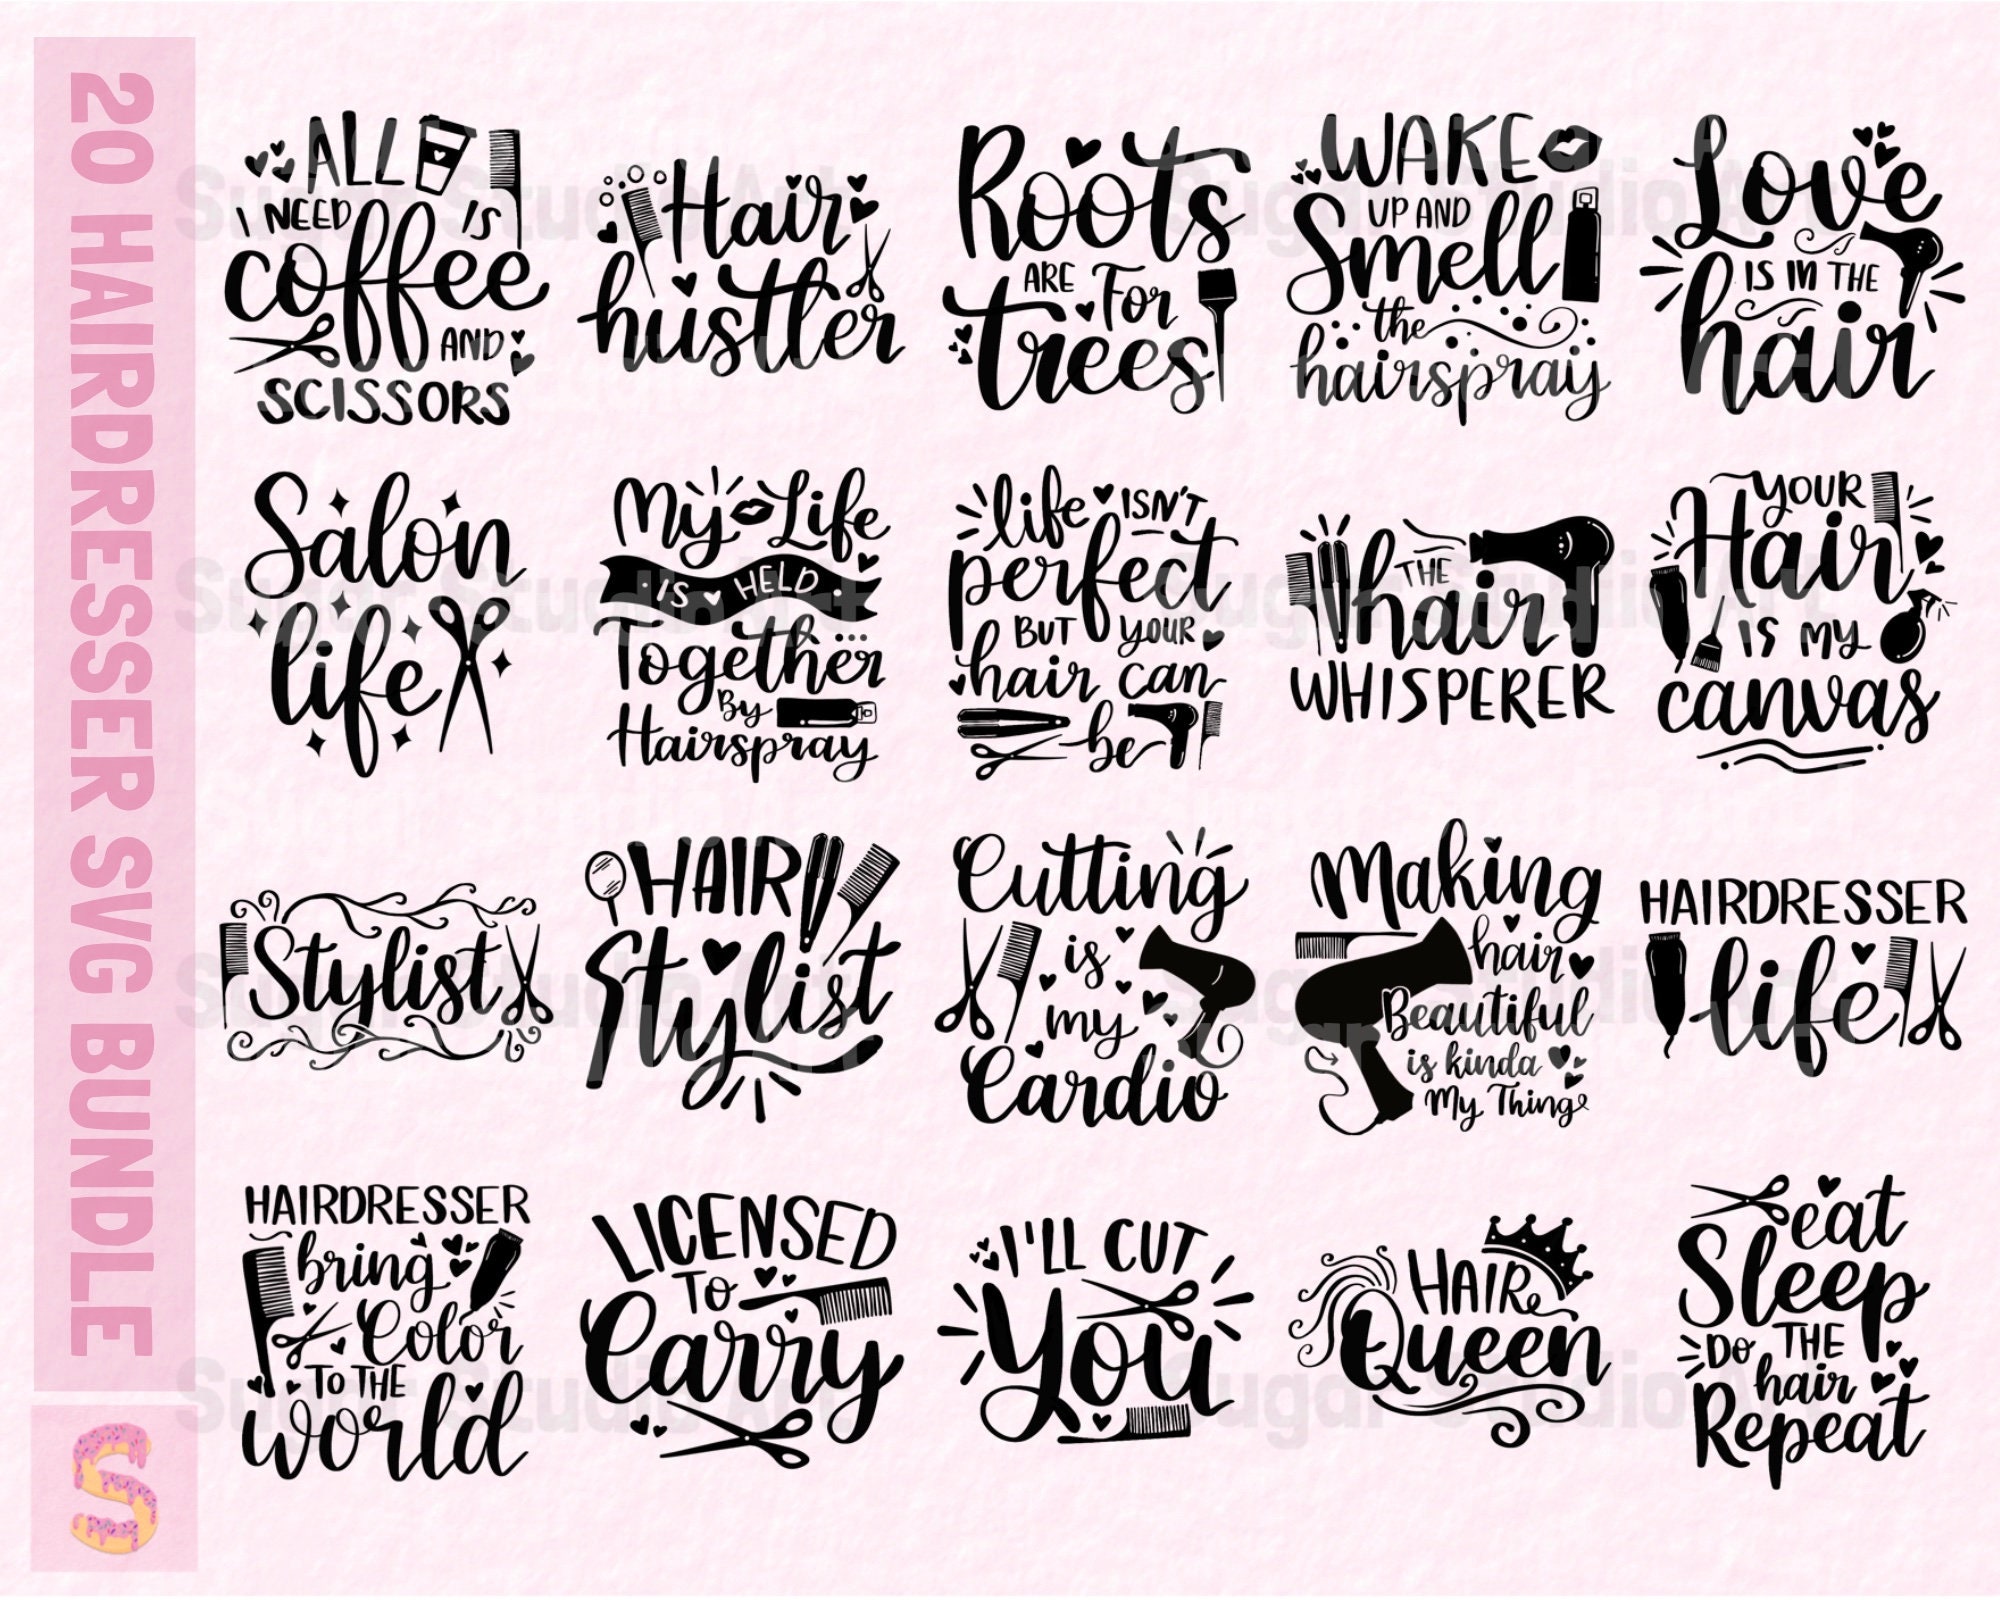 20 HAIRDRESSER SVG BUNDLE
S
ALL
I NEED IS
coffee
AND
SCISSORS
Hair
hustler
Roots
ARE For
trees
WAKE
UP AND
Smell
the
hairspray
Love
IS IN THE
hair
Salon
life
My Life
IS HELD
Together
By
Hairspray
life ISN'T
perfect
BUT YOUR
hair can
be
THE
hair
WHISPERER
YOUR
Hair
IS MY
canvas
Stylist
HAIR
Stylist
Cutting
is
my
Cardio
Making
hair
Beautiful
is kinda
My Thing
HAIRDRESSER
life
HAIRDRESSER
bring
Color
TO THE
world
LICENSED
TO
Carry
I'LL CUT
You
HAIR
Queen
eat
Sleep
DO THE
hair
Repeat
Sugar Studio Art
Sugar Studio Art
Sugar Studio Art
Sugar Studio Art
Sugar Studio Art
Sugar Studio Art
Sugar Studio Art
Sugar Studio Art